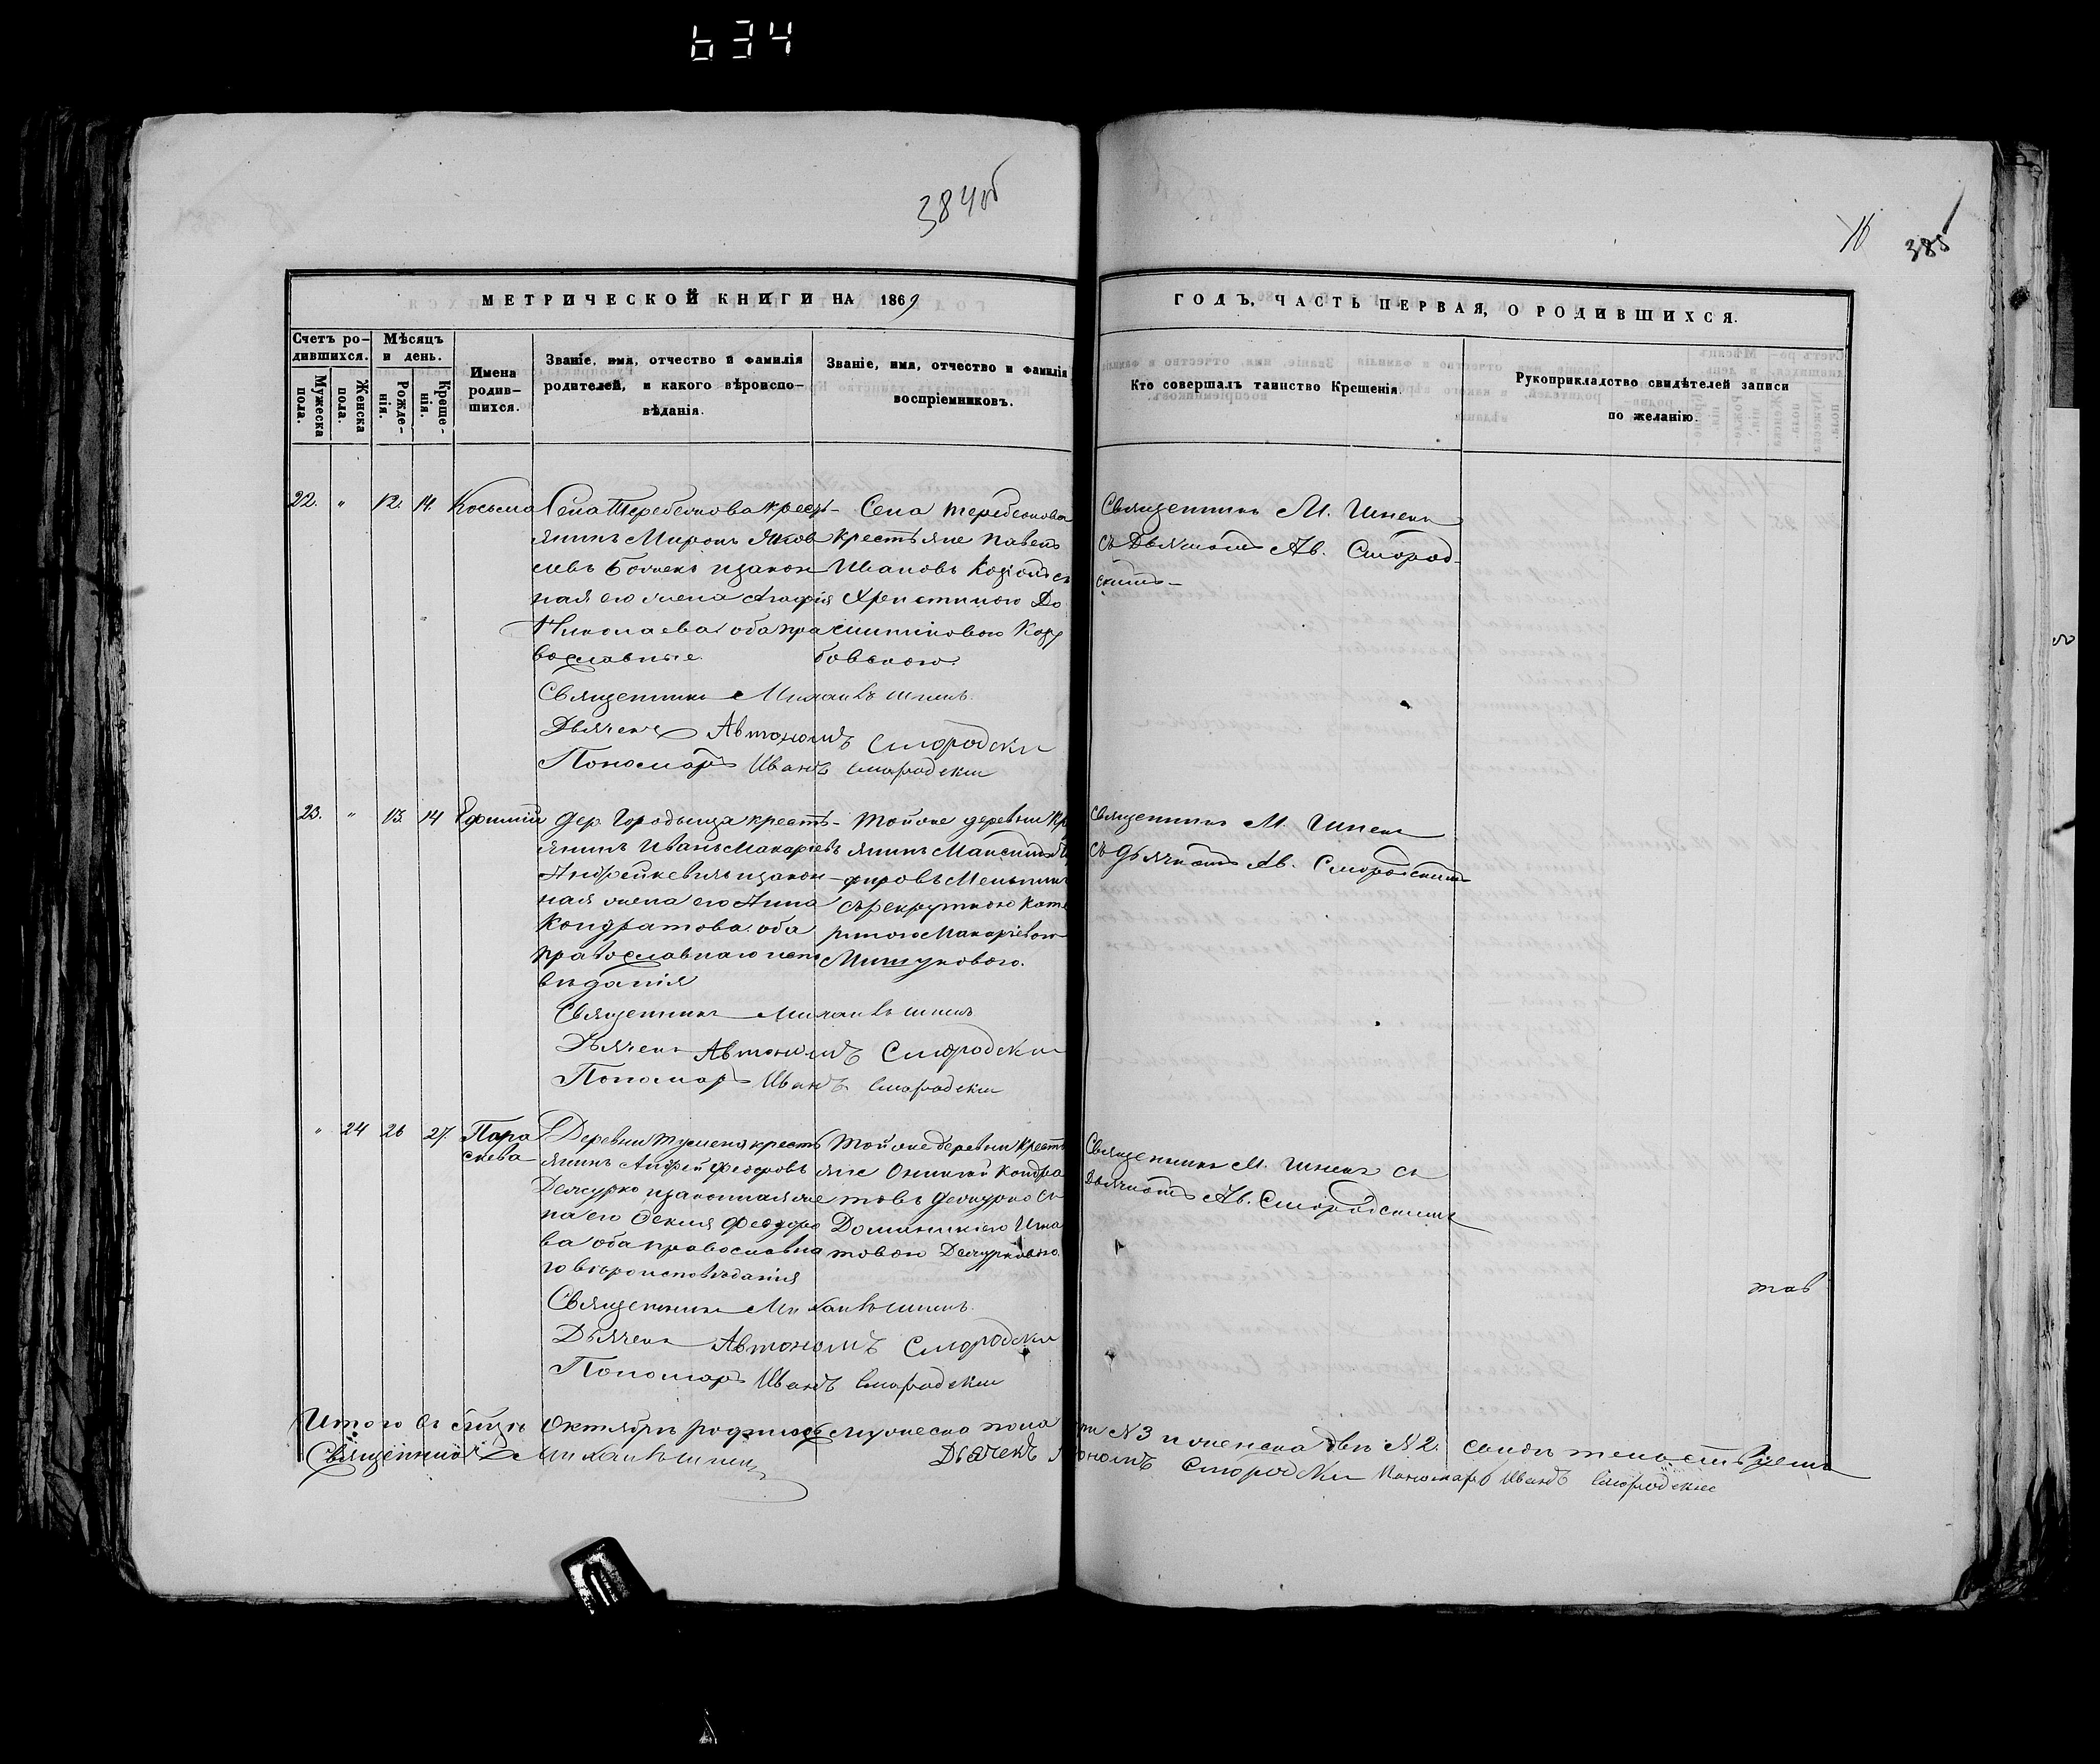 634
384об
16 385
МЕТРИЧЕСКОЙ КНИГИ НА 1869
ГОДЪ, ЧАСТЬ ПЕРВАЯ, О РОДИВШИХСЯ.
Счетъ ро-
дившихся.
Мужеска пола.
Женска пола.
Мѣсяцъ
и день.
Рожде-
нія.
Креще-
нія.
Имена
родив-
шихся.
Званіе, имя, отчество и фамилія
родителей, и какого вѣроиспо-
вѣданія.
Званіе, имя, отчество и фамилія
воспріемниковъ.
Кто совершалъ таинство Крещенія.
Рукоприкладство свидѣтелей записи
по желанію.
22. " 12. 14. Косьма
Села Теребежова крест-
янинъ Миронъ Яков
левъ и закон
ная его жена Агафія
Николаева оба пра
вославные.
Села Теребежова
крестьяне Павелъ
Ивановъ
Христиною До
Священникъ М.
съ Дьячкомъ Ав. Смород-
скимъ
Священникъ Михаилъ
Дьячекъ Автономъ Смородски
Пономаръ Иванъ Смородски
23. " 13. 14 Ефимій
Дер. Городища кресть-
янинъ Иванъ Макаріевъ
Андрейкевичъ и закон-
ная жена его Анна
Кондратова оба
православнаго испо
вѣданія
Той же деревни Кр
янинъ Максимъ
фировъ
съ рекруткою Кате
риною Макаріевою
Мишуковою.
Священникъ М.
съ дьячкомъ Ав. Смородскимъ
Священникъ Михаилъ
Дьячекъ Автономъ Смородски
Пономаръ Иванъ Смородски
" 24 26 27. Пара
скева
Деревни кресть
янинъ Андрей Феодоровъ
Дежурко и законная же
на его Феодоро
ва оба православна
го вѣроисповѣданія
Той же деревни Кресть
яне Кондра
товъ Дежурко съ
Доминикіею Игна
товою Дежурковою
Священникъ М. съ
Дьячкомъ Ав. Смородскимъ
Священникъ Михаилъ
Дьячекъ Автономъ Смородски
Пономаръ Иванъ Смородски
Итого въ Октябрѣ родилось мужеска пола три N3 и женска двѣ N2.
Священникъ Михаилъ Дьячекъ Автономъ Смородски Пономаръ Иванъ Смородски